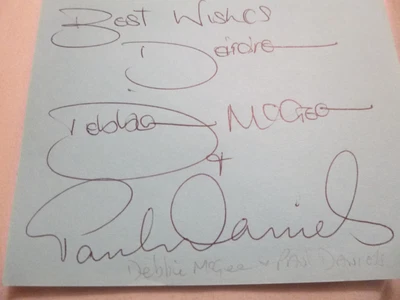 Best Wishes
Deirdre
Debbie McGee
&
Paul Daniels
Debbie McGee & Paul Daniels